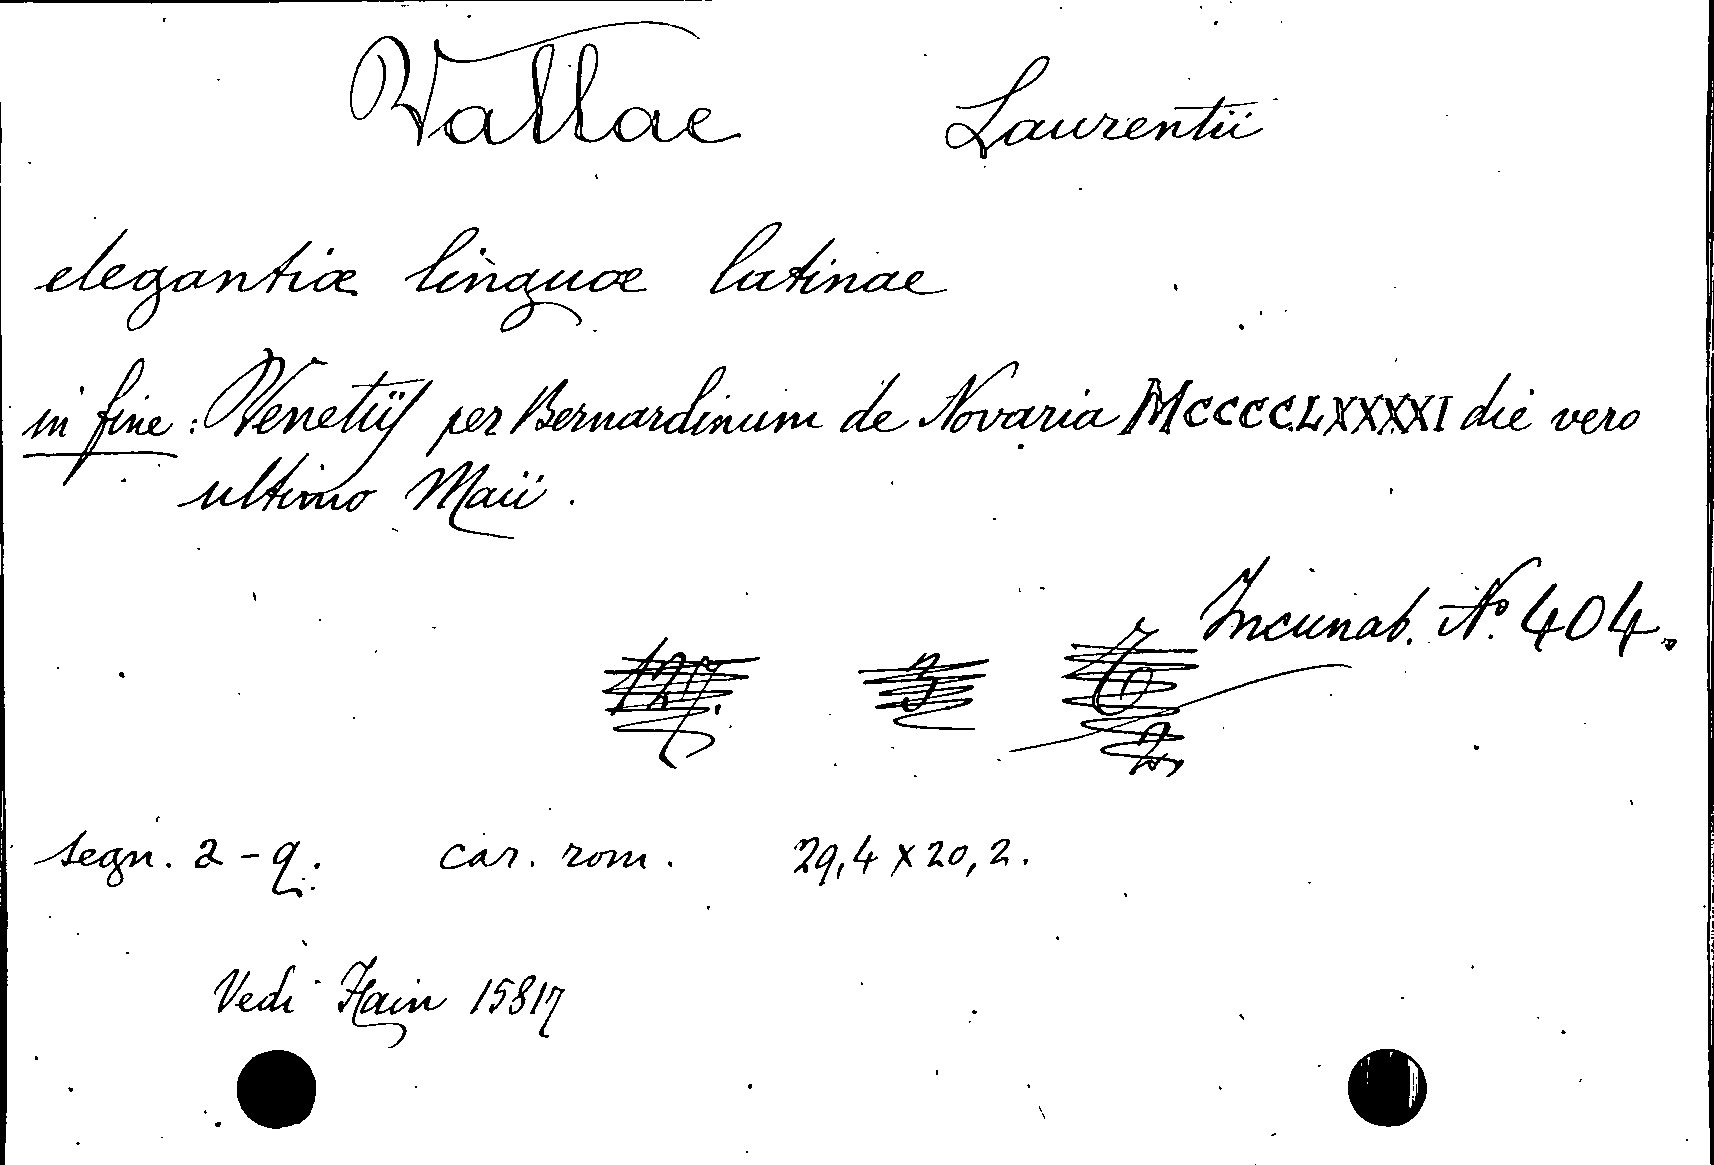 Vallae Laurentii
elegantiæ linguæ latinae
in fine: Venetiis per Bernardinum de Novaria MCCCCLXXXXI die vero
ultimo Maii.
Incunab. No. 404.
segn. a - q. car. rom. 29,4 x 20,2.
Vedi Hain 15817